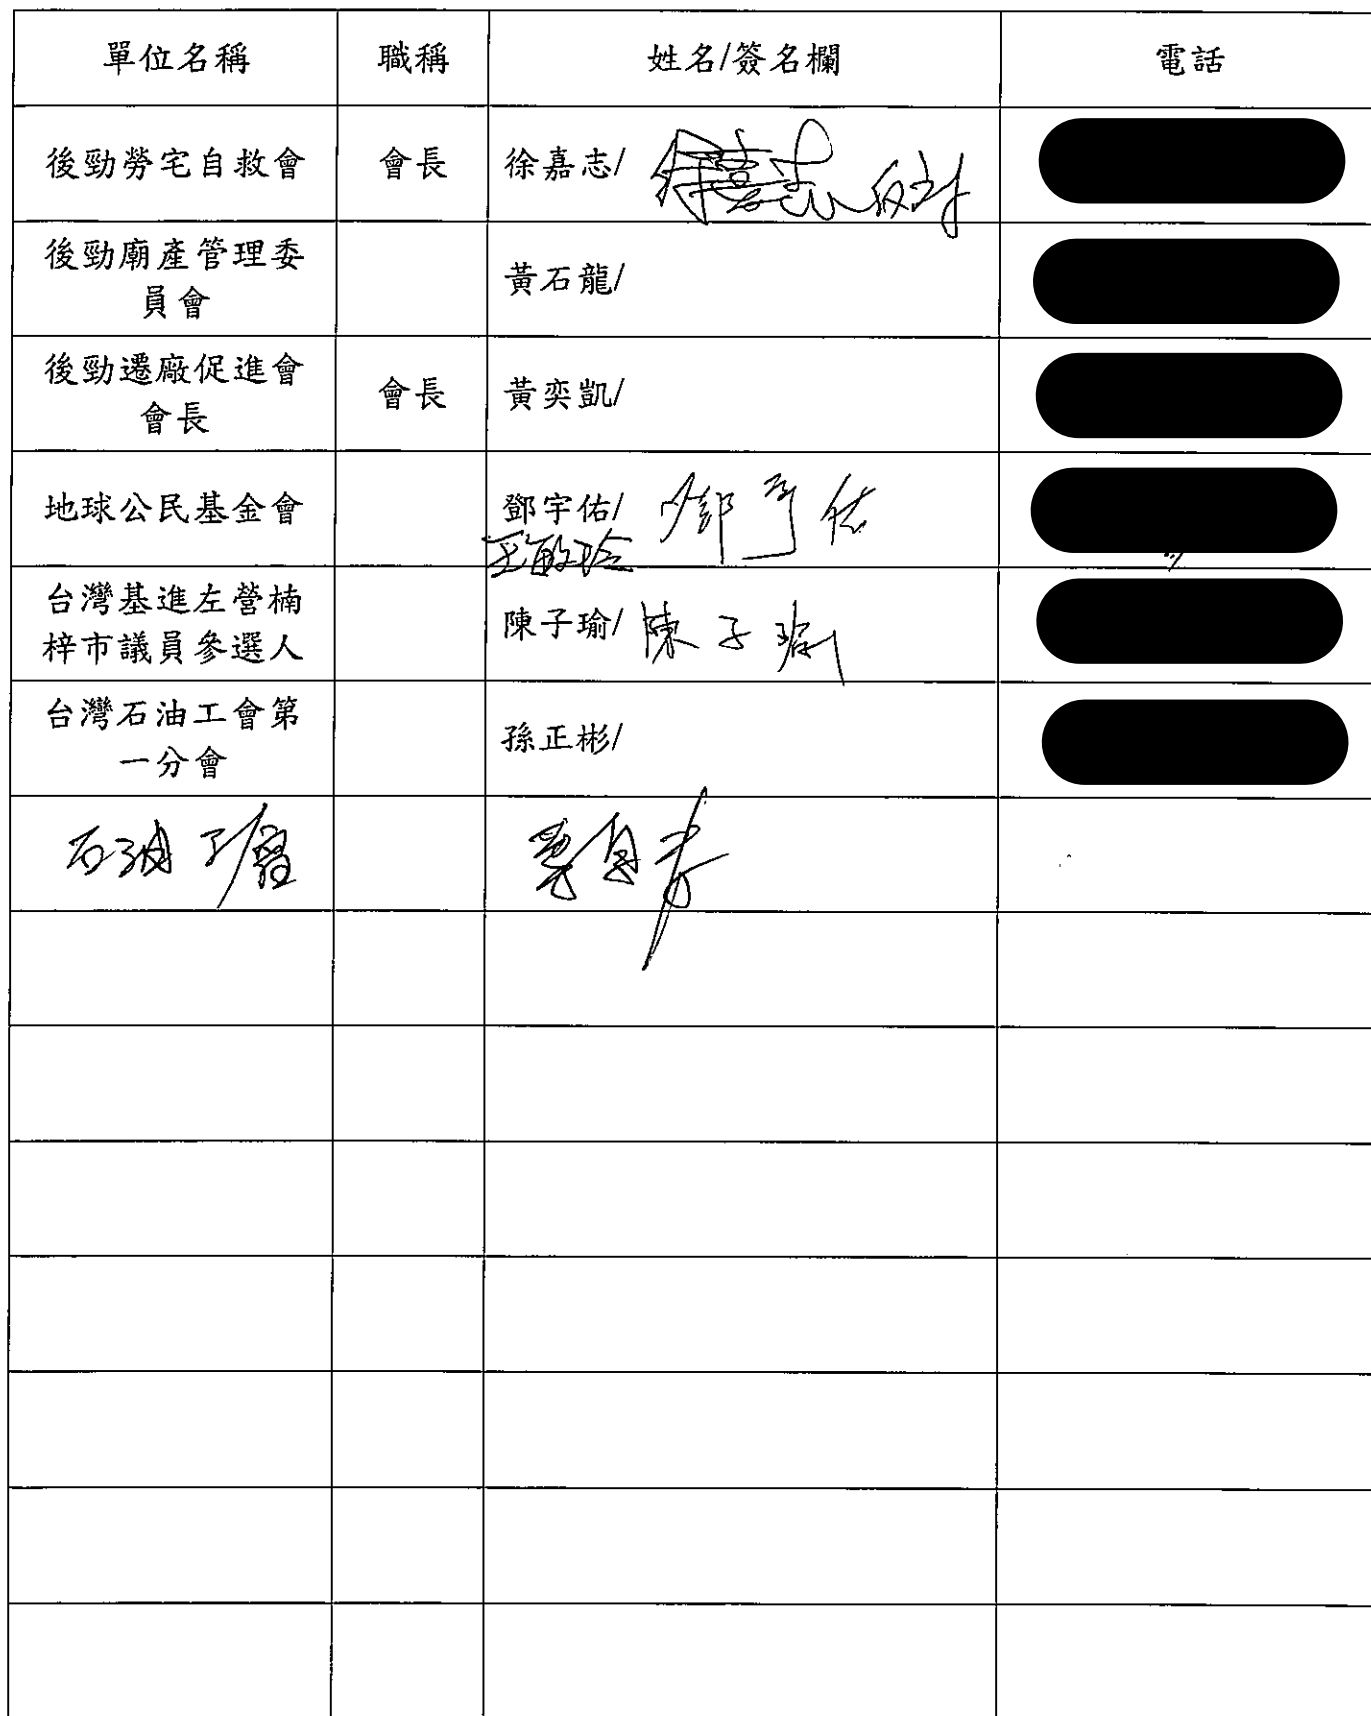 單位名稱 職稱 姓名/簽名欄 電話
後勁勞宅自救會 會長 徐嘉志/ 徐嘉志 反對
後勁廟產管理委
員會 黃石龍/
後勁遷廠促進會
會長 會長 黃奕凱/
地球公民基金會 鄧宇佑/ 鄧宇佑
王敏玲
台灣基進左營楠
梓市議員參選人 陳子瑜/ 陳子瑜
台灣石油工會第
一分會 孫正彬/
石油工會